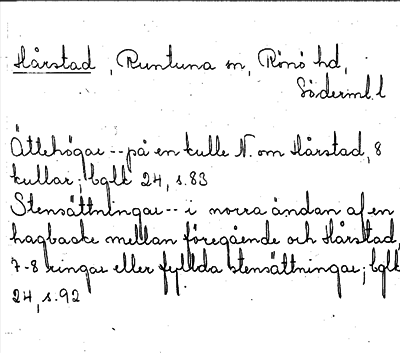 Hårstad, Runtuna sn, Rönö hd,
Söderml. l
Ättehögar -- på en kulle N. om Hårstad, 8
kullar; bglk 24, s. 83
Stensättningar -- i norra ändan af en
hagbacke mellan föregående och Hårstad,
7-8 ringar eller fyllda stensättningar; bglk
24, s. 92